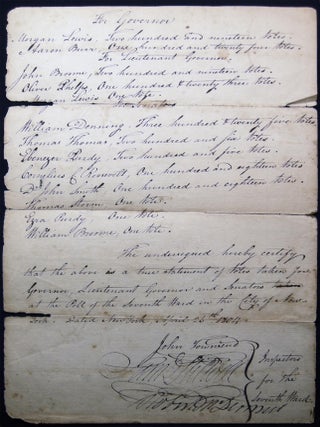 For Governor
Morgan Lewis, Two hundred and nineteen Votes.
Aaron Burr, One hundred and twenty four Votes.
For Lieutenant Governor.
John Broome, Two hundred and nineteen Votes.
Oliver Phelps, One hundred & twenty three Votes.
Morgan Lewis One Vote.
For Senators
William Denning, Three hundred & twenty five Votes
Thomas Thomas, Two hundred and six Votes.
Ebenezer Purdy, Two hundred and five Votes.
Cornelius C. Roosevelt, One hundred and eighteen Votes
John Smith One hundred and eighteen Votes.
Thomas Storm One Vote.
Ezra Purdy One Vote.
William Broome, One Vote.
The undersigned hereby certify
that the above is a true statement of Votes taken for
Governor, Lieutenant Governor and Senators
at the Poll of the Seventh Ward in the City of New
York. Dated New York April 26th 1804
John Townsend
Inspectors
for the
Seventh Ward.